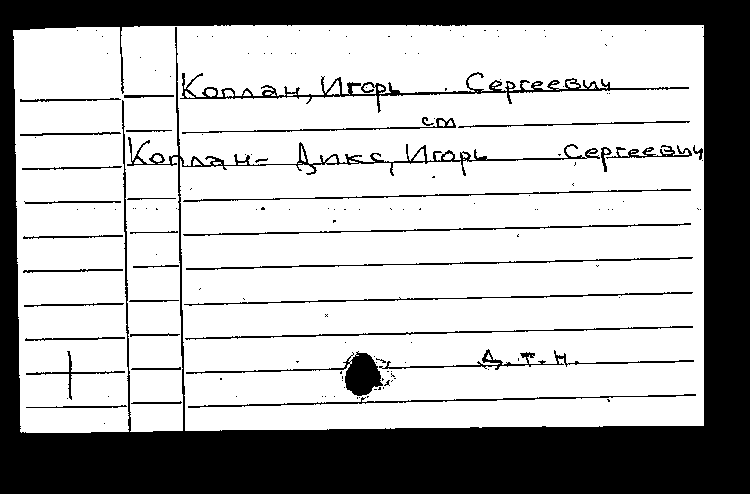 Коплан, Игорь Сергеевич
см
Коплан- Дикс, Игорь Сергеевич
д.т.н.